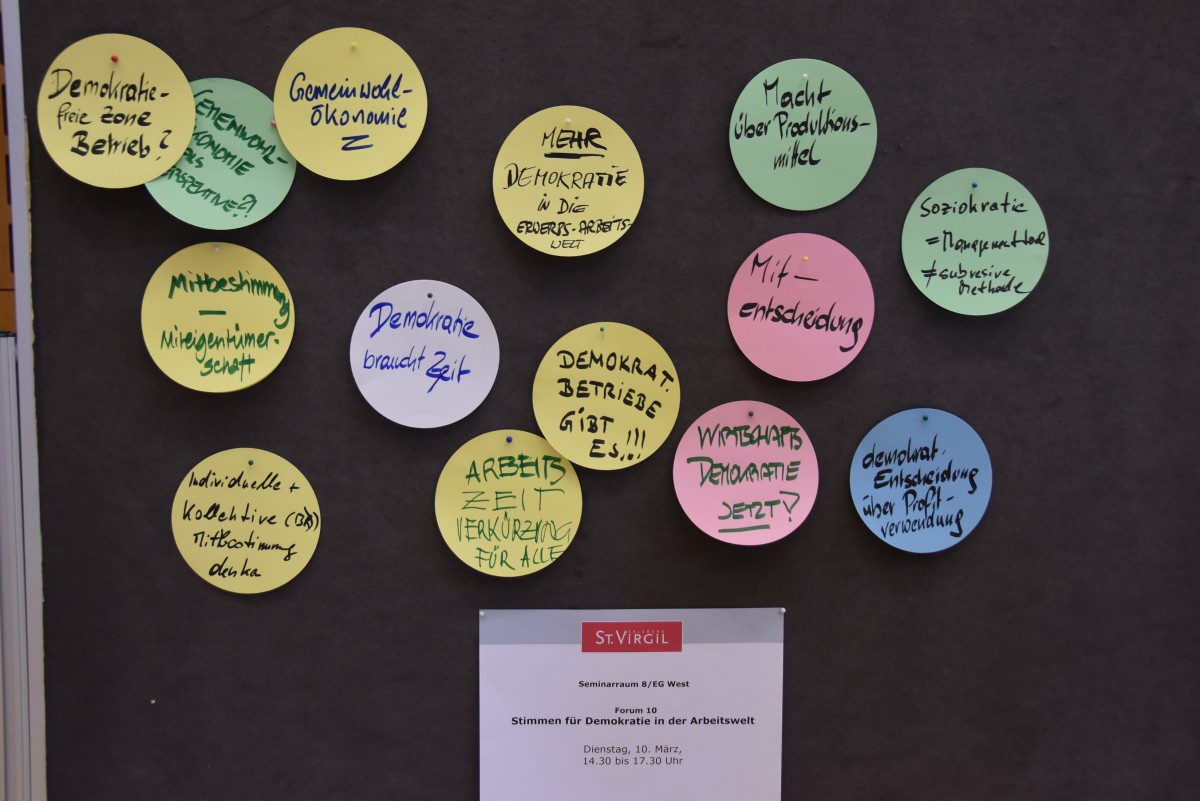 Demokratie-
freie Zone
Betrieb?
Gemeinwohl-
ökonomie
MEHR
DEMOKRATIE
IN DIE
ERWERBS-ARBEITS-
WELT
Macht
über Produktions-
mittel
Soziokratie
=
≠ subresive
Methode
Mitbestimmung
—
Miteigentümer-
schaft
Demokratie
braucht Zeit
DEMOKRAT.
BETRIEBE
GIBT
ES!!!
Mit-
entscheidung
Individuelle +
Kollektive
Mitbestimmung
ARBEITS
ZEIT
VERKÜRZUNG
FÜR ALLE
WIRTSCHAFTS
DEMOKRATIE
JETZT?
demokrat.
Entscheidung
über Profit-
verwendung
ST. VIRGIL
Seminarraum 8/EG West
Forum 10
Stimmen für Demokratie in der Arbeitswelt
Dienstag, 10. März,
14.30 bis 17.30 Uhr